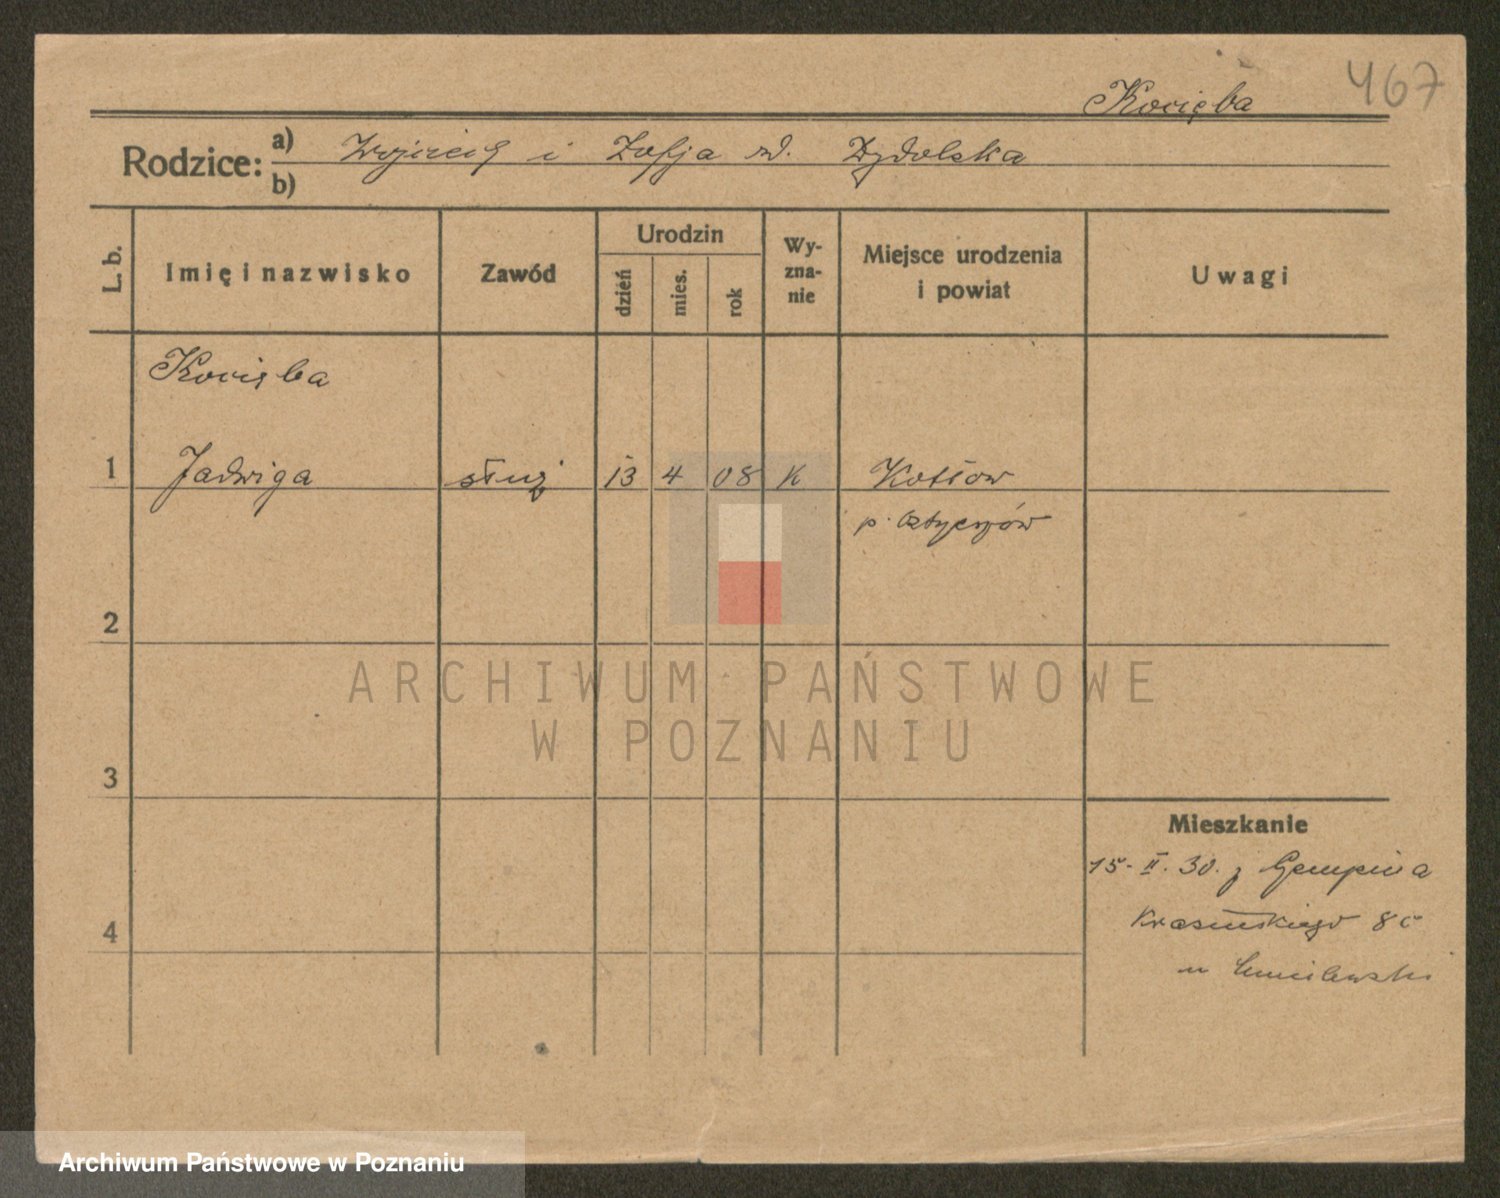 467
Kocięba
Rodzice: a) Wojciech i Zofja zd. Dydolska
b)
L. b. Imię i nazwisko Zawód Urodzin dzień mies. rok Wyznanie Miejsce urodzenia i powiat Uwagi
Kocięba
1 Jadwiga służ 13 4 08 K Kotłow
p.
2
ARCHIWUM PAŃSTWOWE
W POZNANIU
3
Mieszkanie
15. II. 30. z Gempina
4 Krasińskiego 8
Archiwum Państwowe w Poznaniu